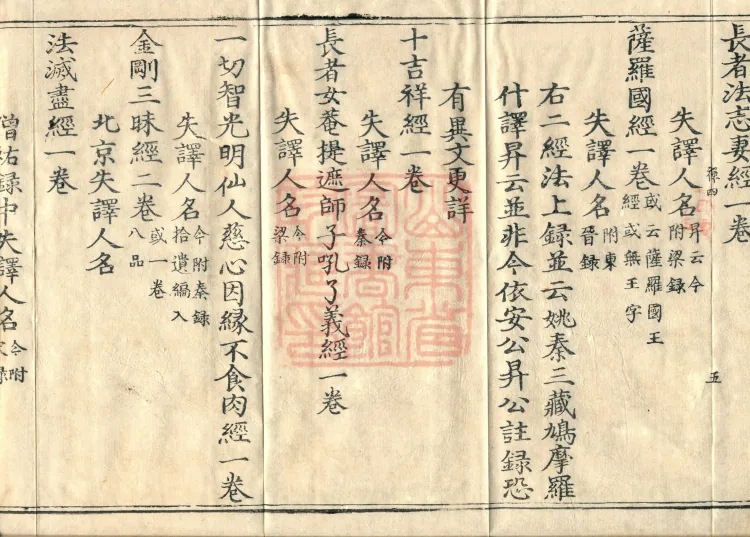 長者法志妻經一卷
失譯人名昇云今附梁録
薩羅國經一卷或云薩羅國王經或無王字
失譯人名附東晉録
右二經法上録並云姚秦三藏鳩摩羅
什譯昇云並非今依安公昇公註録恐
有異文更詳
十吉祥經一卷
失譯人名今附秦録
長者女菴提遮師子吼了義經一卷
失譯人名今附梁録
一切智光明仙人慈心因緣不食肉經一卷
失譯人名今附秦録拾遺編入
金剛三昧經二卷或一卷八品
北京失譯人名
法滅盡經一卷
僧祐録中失譯人名今附
五